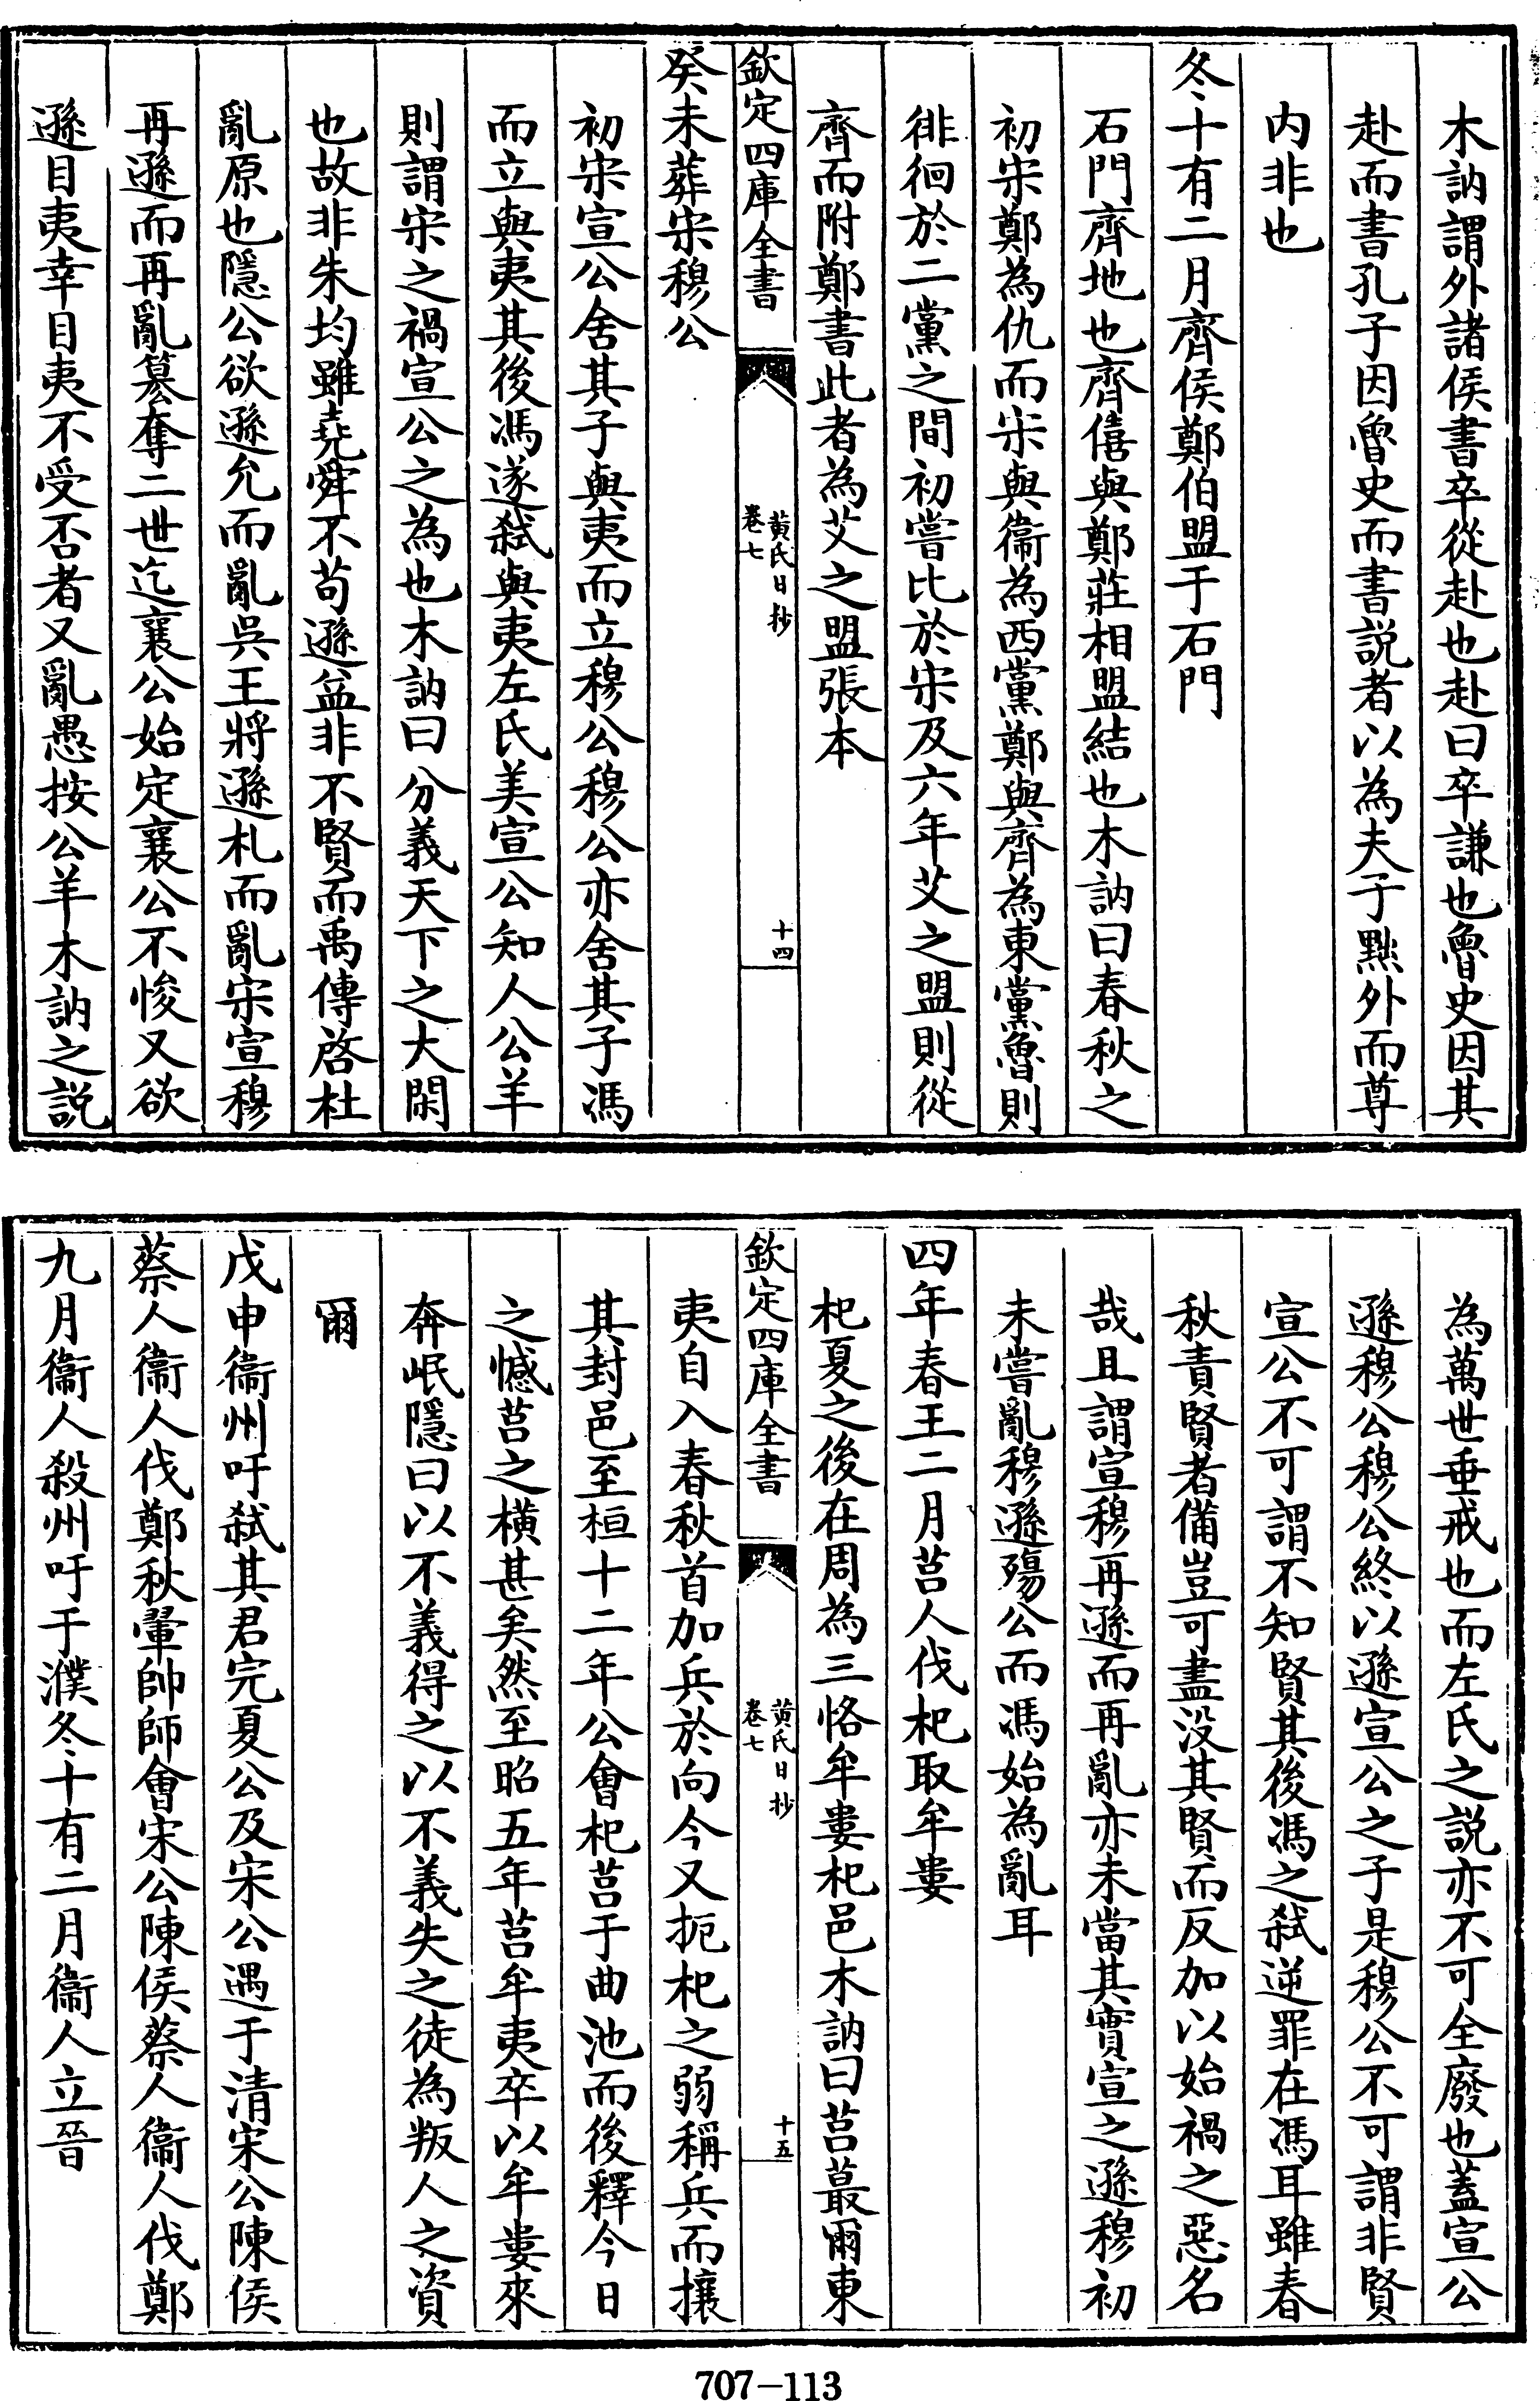 木訥謂外諸侯書卒從赴也赴曰卒謙也魯史因其
赴而書孔子因魯史而書説者以為夫子㸃外而尊
内非也
冬十有二月齊侯鄭伯盟于石門
石門齊地也齊僖與鄭莊相盟結也木訥曰春秋之
初宋鄭為仇而宋與衞為西黨鄭與齊為東黨魯則
徘徊於二黨之間初嘗比於宋及六年艾之盟則從
齊而附鄭書此者為艾之盟張本
欽定四庫全書
黄氏日抄
卷七
十四
癸未葬宋穆公
初宋宣公舍其子與夷而立穆公穆公亦舍其子馮
而立與夷其後馮遂弑與夷左氏美宣公知人公羊
則謂宋之禍宣公之為也木訥曰分義天下之大閑
也故非朱均雖堯舜不苟遜益非不賢而禹傳啓杜
亂原也隱公欲遜允而亂吳王將遜札而亂宋宣穆
再遜而再亂簒奪二世迄襄公始定襄公不悛又欲
遜目夷幸目夷不受否者又亂愚按公羊木訥之説
為萬世垂戒也而左氏之説亦不可全廢也蓋宣公
遜穆公穆公終以遜宣公之子是穆公不可謂非賢
宣公不可謂不知賢其後馮之弑逆罪在馮耳雖春
秋責賢者備豈可盡没其賢而反加以始禍之惡名
哉且謂宣穆再遜而再亂亦未當其實宣之遜穆初
未嘗亂穆遜殤公而馮始為亂耳
四年春王二月莒人伐杞取牟婁
杞夏之後在周為三恪牟婁杞邑木訥曰莒蕞爾東
欽定四庫全書
黄氏日抄
卷七
十五
夷自入春秋首加兵於向今又扼杞之弱稱兵而攘
其封邑至桓十二年公會杞莒于曲池而後釋今日
之憾莒之横甚矣然至昭五年莒牟夷卒以牟婁來
奔岷隱曰以不義得之以不義失之徒為叛人之資
爾
戊申衞州吁弑其君完夏公及宋公遇于清宋公陳侯
蔡人衞人伐鄭秋翬帥師會宋公陳侯蔡人衞人伐鄭
九月衞人殺州吁于濮冬十有二月衞人立晉
707-113